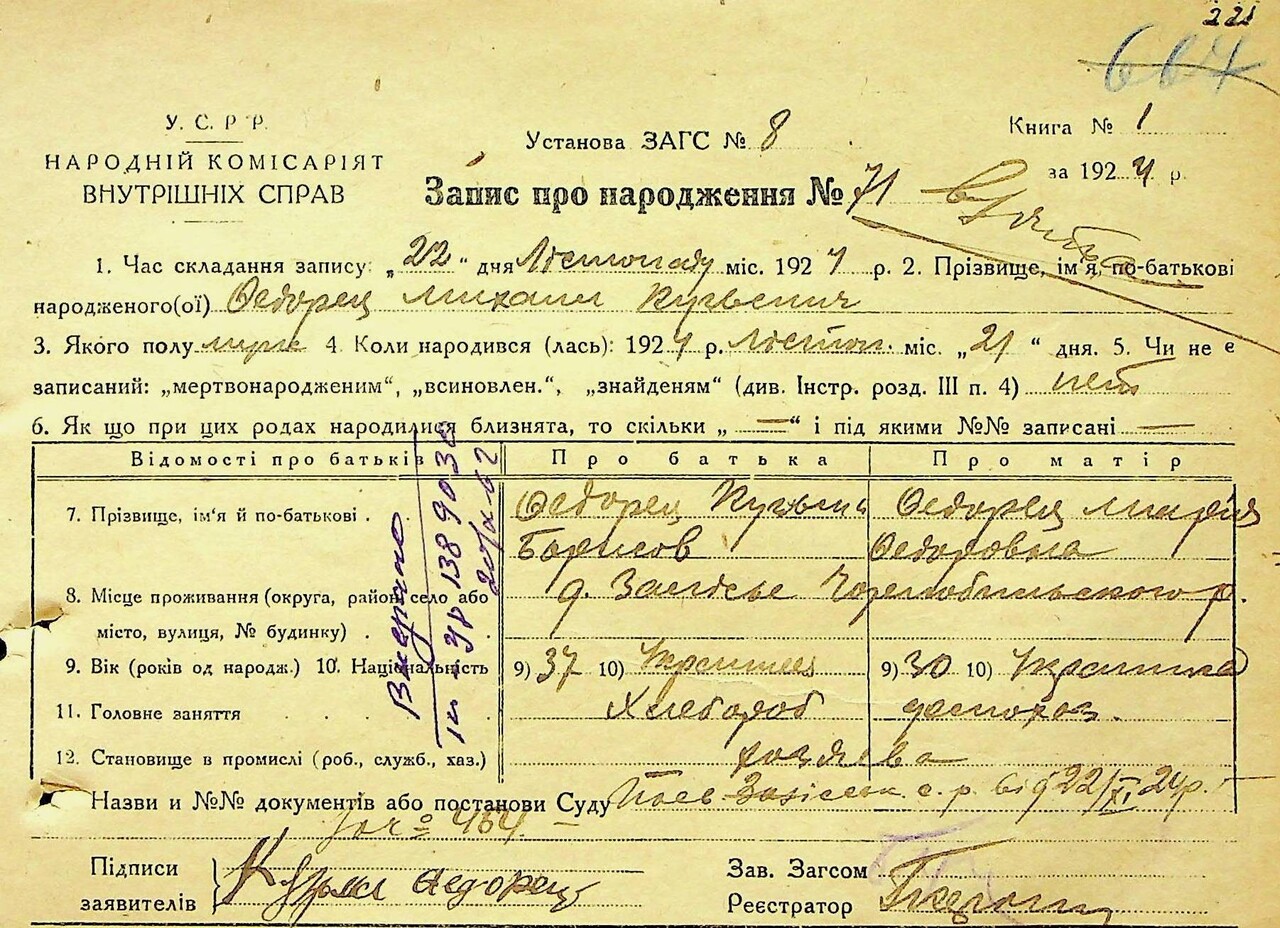 221
664
У. С. Р Р.
НАРОДНІЙ КОМІСАРІЯТ
ВНУТРІШНІХ СПРАВ
Установа ЗАГС № 8
Книга № 1
за 1924 р.
Запис про народження № 71
1. Час складання запису: „22“ дня Лістопаду міс. 1924 р. 2. Прізвище, ім'я, по-батькові
народженого(ої) Федорец Михаил Кузьмич
3. Якого полу муж 4. Коли народився (лась): 1924 р. Лістоп. міс. „21“ дня. 5. Чи не є
записаний: „мертвонародженим“, „всиновлен.“, „знайденям“ (див. Інстр. розд. III п. 4) нет
6. Як що при цих родах народилися близнята, то скільки „ — “ і під якими №№ записані —
Відомості про батьків Про батька Про матір
7. Прізвище, ім'я й по-батькові . Федорец Кузьма Федорец Мария
Борисов Федоровна
8. Місце проживання (округа, район, село або д. Залісье Чорнобильского р.
місто, вулиця, № будинку) .
9. Вік (років од народж.) 10. Національність 9) 37 10) Украинец 9) 30 10) Украинка
11. Головне заняття . . . . Хлебороб
12. Становище в промислі (роб., служб., хаз.) хозяева
Назви и №№ документів або постанови Суду с. р. від 22/XI 24 р.
№ 454
Підписи
заявителів Кузьма Федорец
Зав. Загсом
Реєстратор